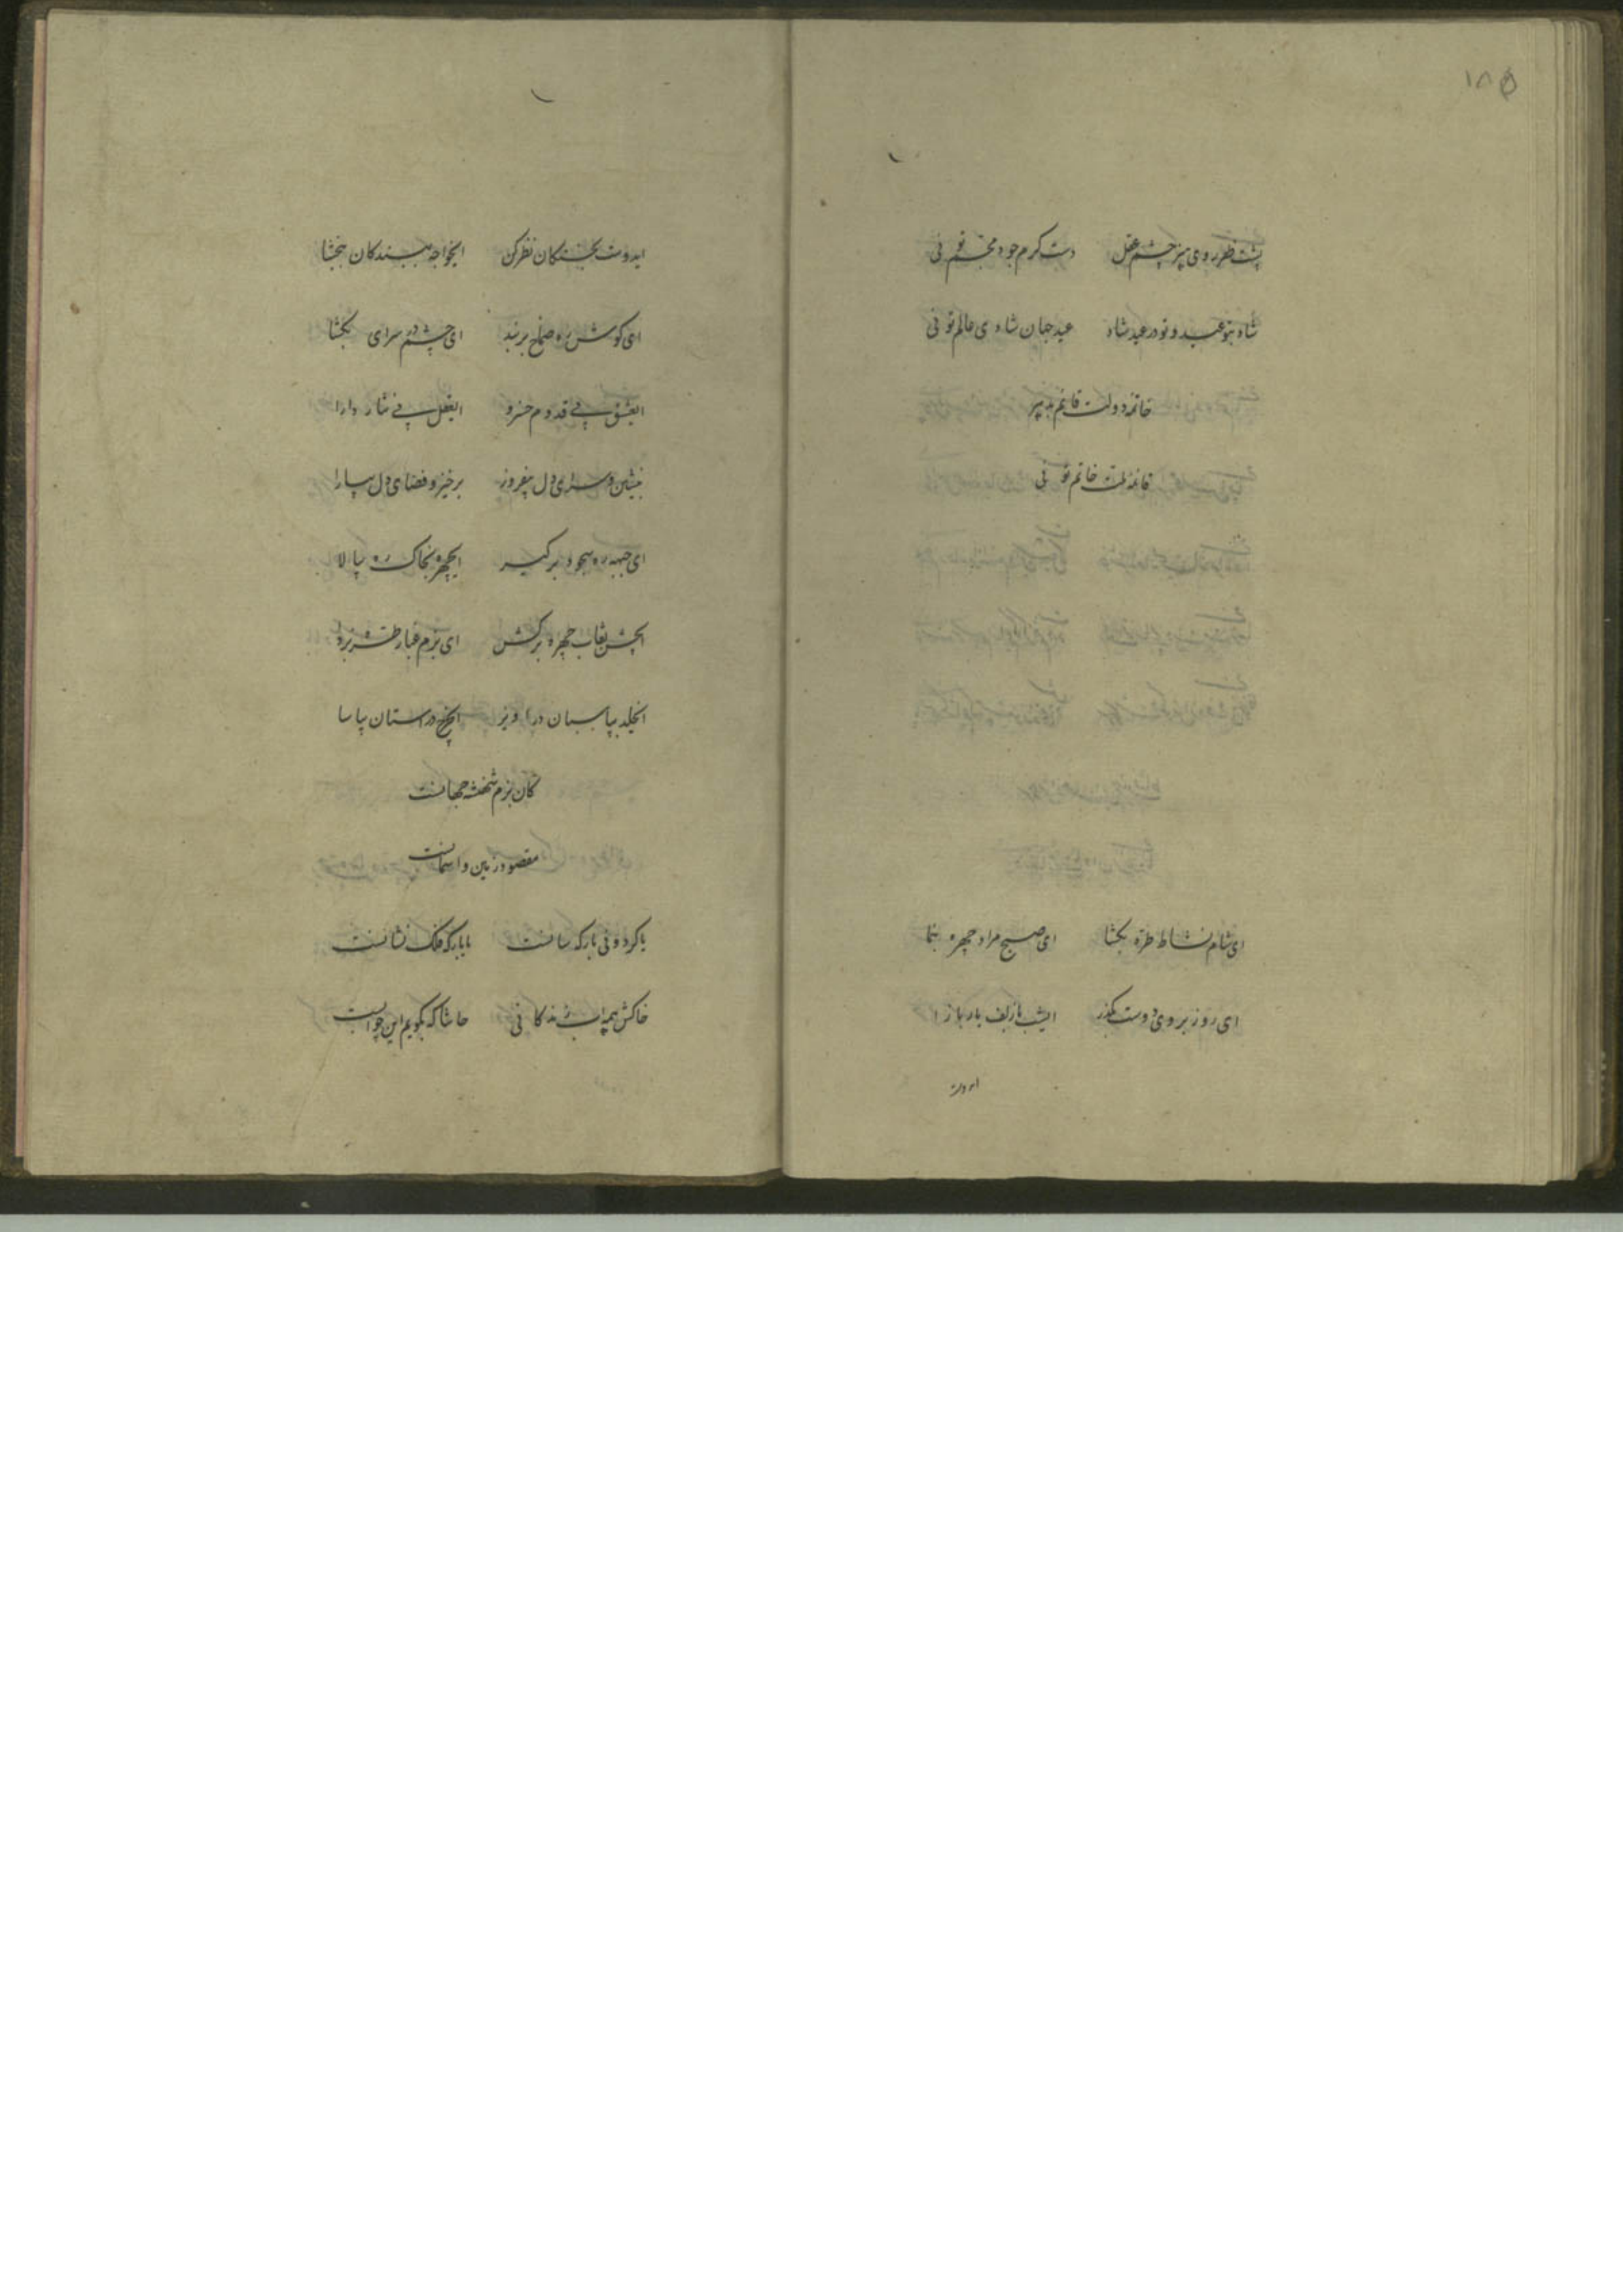 ۱۸۵
پشت ظفر روی هنر چشم عقل دست کرم جود مجسم توئی
شاه بتو عید و تو در عید شاه عید جهان شادی عالم توئی
خاتمه دولت قایم بدهر
فاتحه ملت خاتم توئی
ای شام نشاط طره بکشا ای صبح مراد چهره بنما
ای روز بروی دوست بگذر ایشب از زلف یار بازا
ایدوست
ایدوست بخستکان نظر کن ایخواجه ببندکان ببخشا
ای کوش ره صماخ بربند ای چشم در سرای بکشا
ایعشق پی قدوم خسرو ایعقل پی نثار دارا
بنشین و سرای دل بیفروز برخیز و فضای دل بیارا
ای جبهه ره سجود برکیر ایچهره بخاک ره بیالا
ایجشن نقاب چهره برکش ای بزم غبار طره بزدا
ایخلد بپاسبان دراویز ایچرخ در استان بپا سا
کان بزم شهنشه جهانست
مقصود زمین و اسمانست
یا کردونی بارکه سانست یا بارکه فلک نشانست
خاکش همه اب زندکانی حاشا که بکویم این چو انست